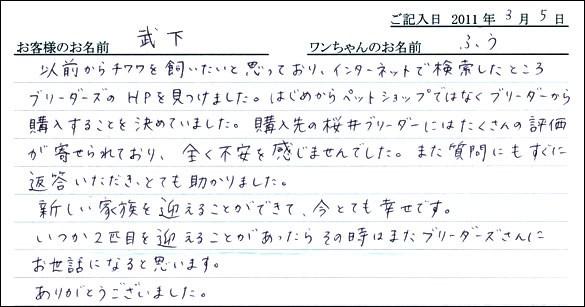 ご記入日 2011年 3月 5日
お客様のお名前 武下 ワンちゃんのお名前 ふう
以前からチワワを飼いたいと思っており、インターネットで検索したところ
ブリーダーズのHPを見つけました。はじめからペットショップではなくブリーダーから
購入することを決めていました。購入先の桜井ブリーダーにはたくさんの評価
が寄せられており、全く不安を感じませんでした。また質問にもすぐに
返答いただき、とても助かりました。
新しい家族を迎えることができて、今とても幸せです。
いつか2匹目を迎えることがあったらその時はまたブリーダーズさんに
お世話になると思います。
ありがとうございました。